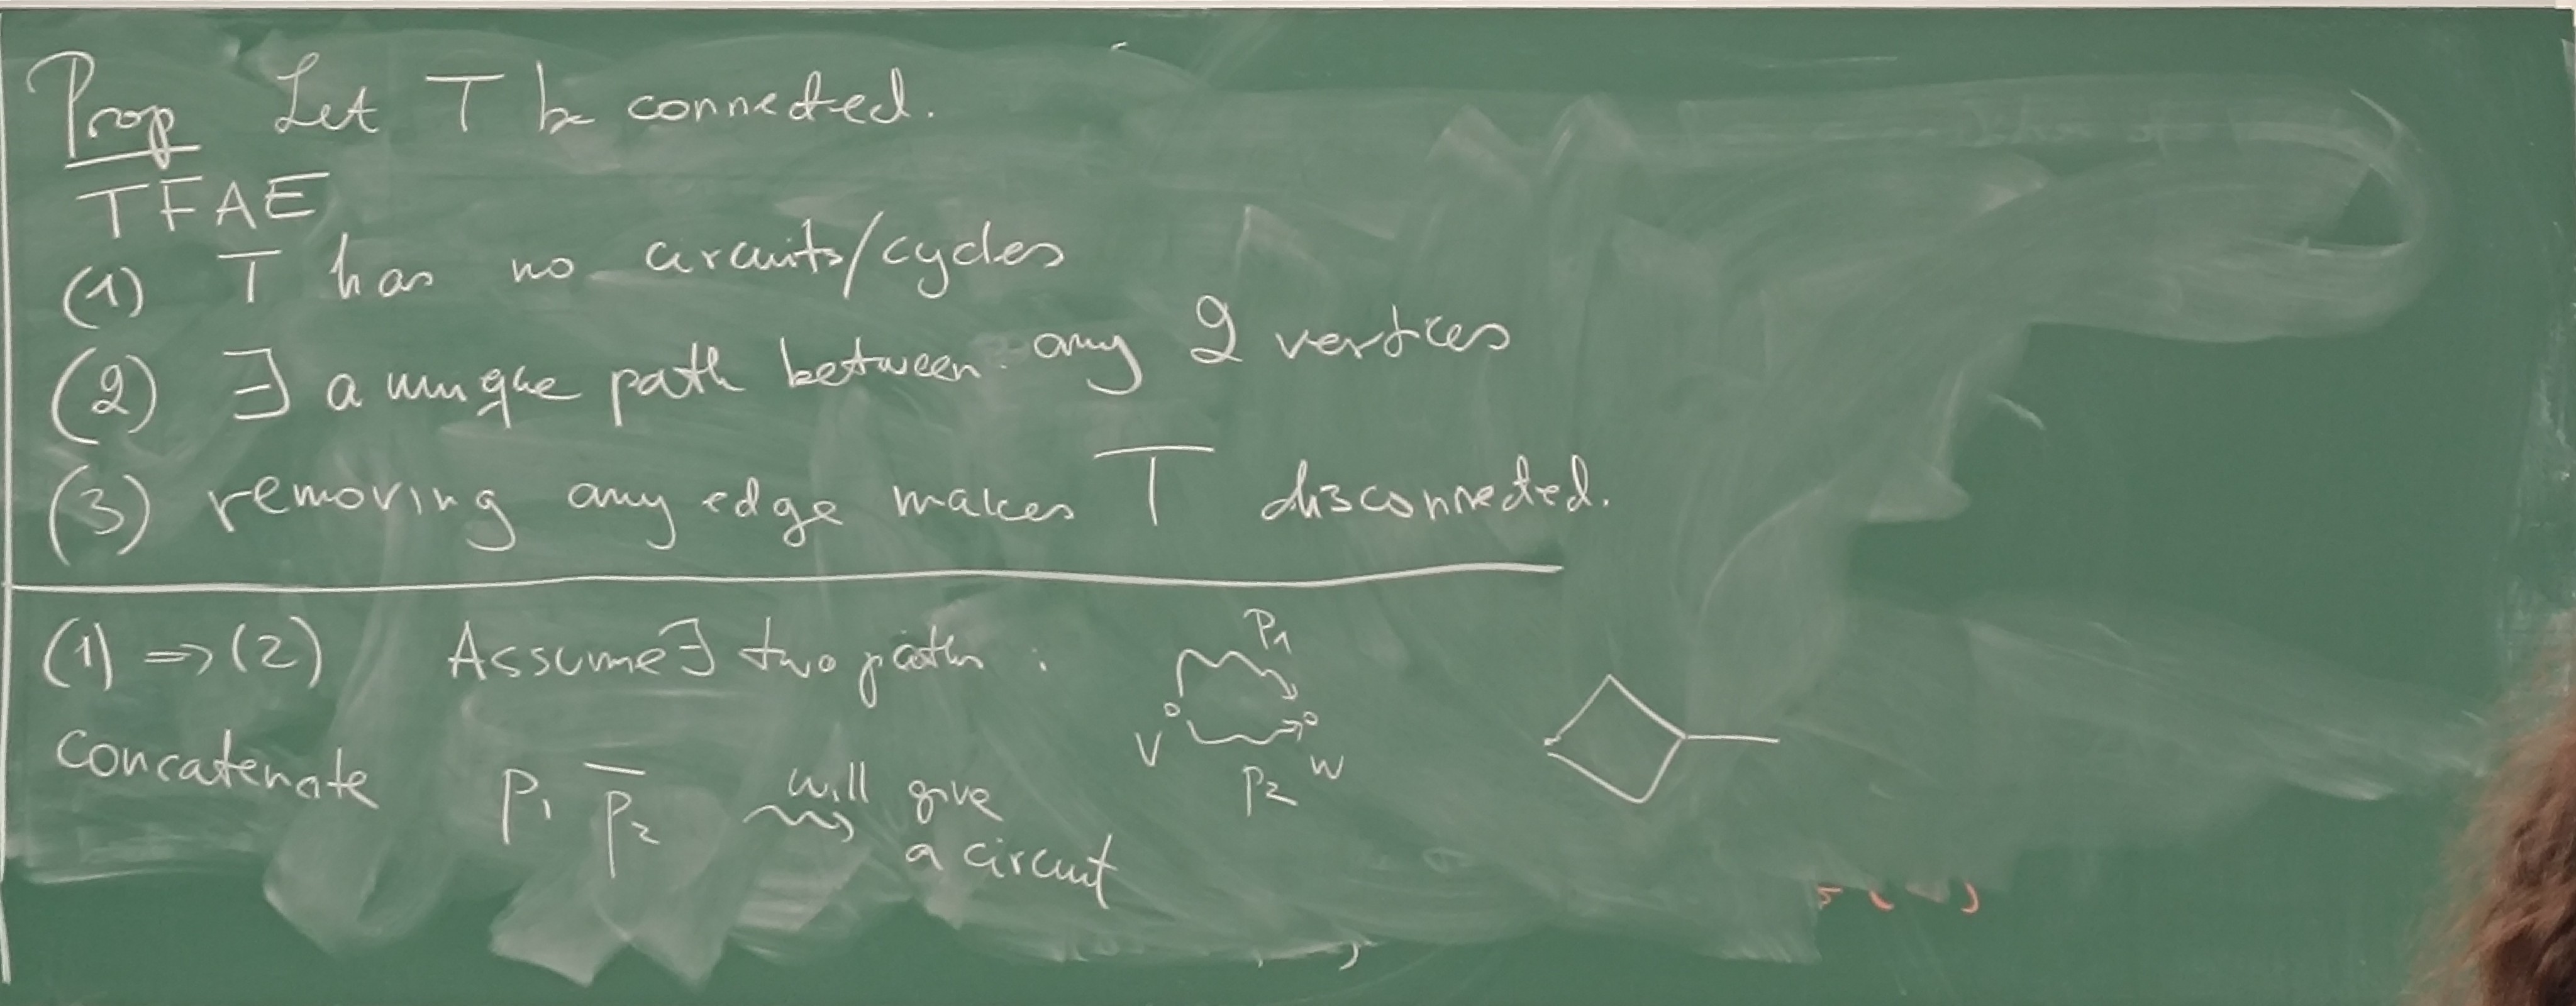 Prop Let T be connected.
TFAE
(1) T has no circuits/cycles
(2) ∃ a unique path between any 2 vertices
(3) removing any edge makes T disconnected.
(1) ⇒ (2) Assume ∃ two paths.
P1
V W
P2
concatenate P1 P̅2 ⇝ will give
a circuit